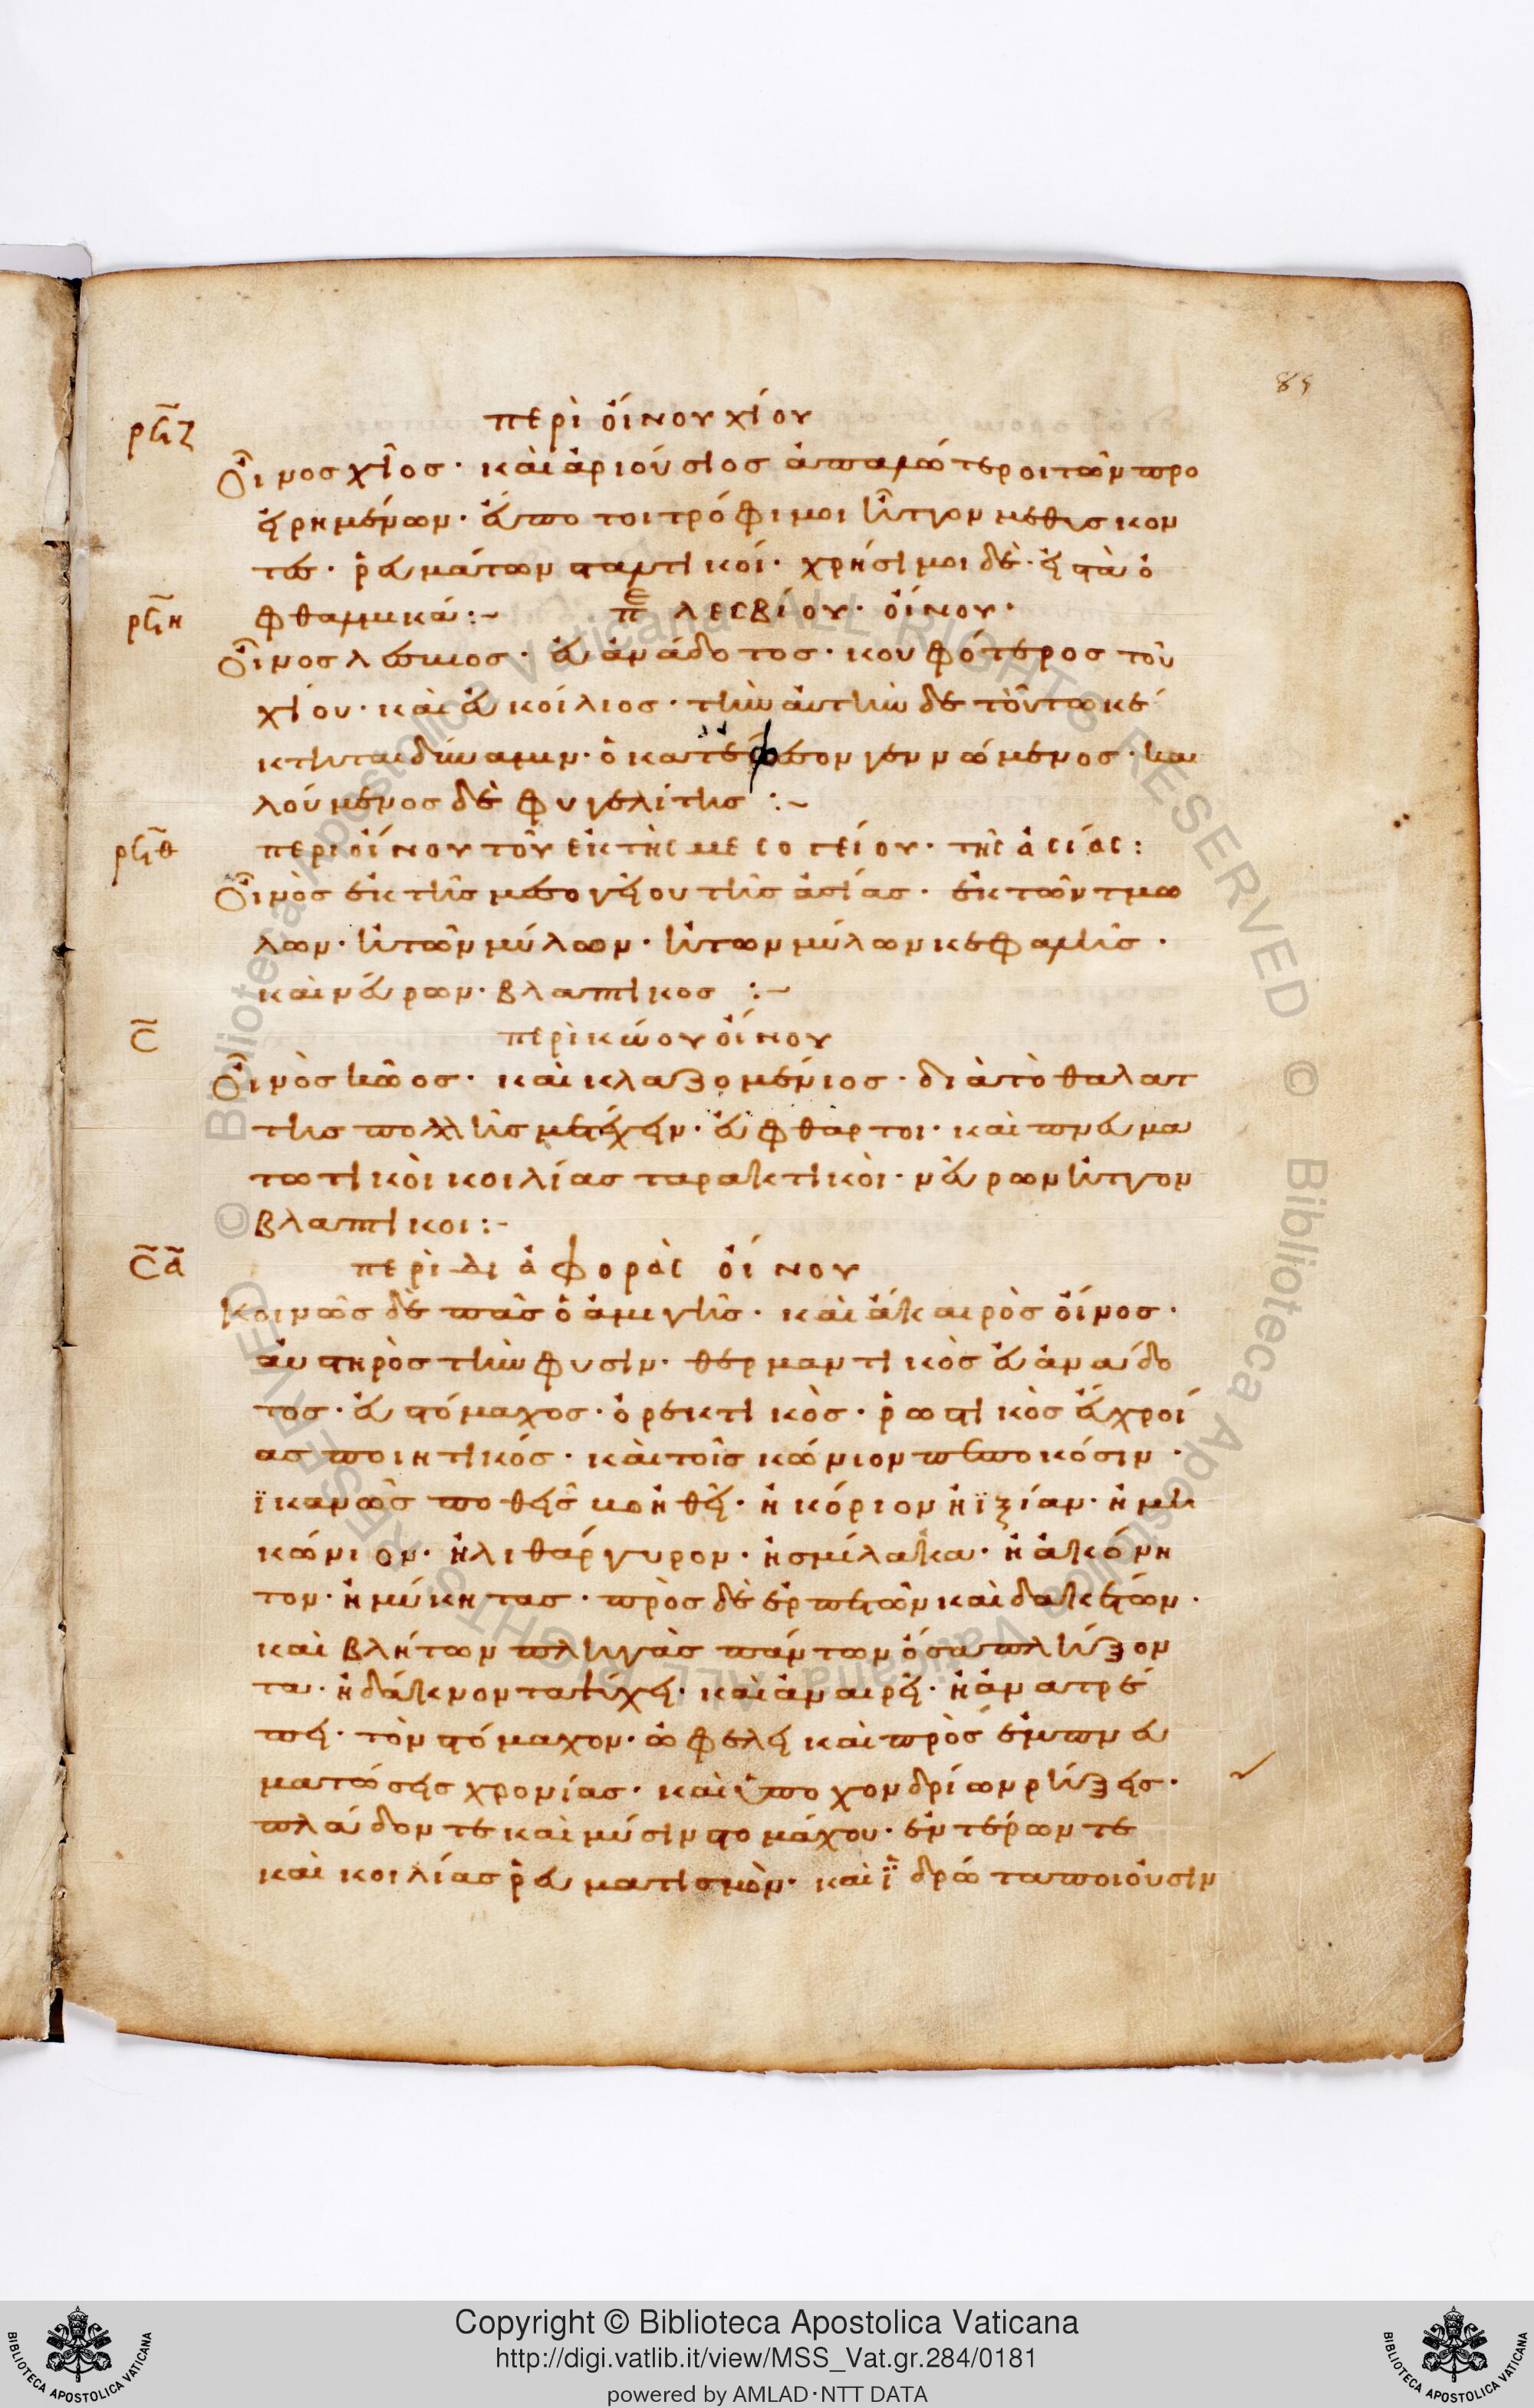 85
ρϟζ περὶ ὀίνου χίου
Ὀῖνος χῖος· καὶ ἀριούσιος ἁπαλώτεροι τῶν προ
ειρημένων· εὔποτοι τρόφιμοι ἧττον μεθύσκον
τες· ῥευμάτων σταλτικοί· χρήσιμοι δὲ· εἰς τὰ ὀ
ρϟη φθαλμικά:~ πε λεσβίου· ὀίνου·
Ὀῖνος λέσβιος· εὐανάδοτος· κουφότερος τοῦ
χίου· καὶ εὐκοίλιος· τὴν ἀυτὴν δὲ τοῦτω κέ
κτηται δύναμιν· ὁ κατ' ἔφεσον γεννώμενος· κα
λούμενος δὲ φυγελίτης :~
ρϟθ περι οἴνου τοῦ ἐκ τῆς μεσογείου· τῆς ἀσίας:
Ὀῖνὸς ἐκ τῆς μεσογείου τῆς ἀσίας· ἐκ τῶν τμω
λων· ἡττῶν μύλων· ἡττων μύλων κεφαλῆς·
καὶ νεύρων· βλαπτικος :~
σ περὶ κώου ὀίνου
Ὀῖνὸς κῶος· καὶ κλαζομένιος· διὰ τὸ θαλατ
της πολλῆς μετέχειν· εὔφθαρτοι· καὶ πνευμα
τωτικὸι κοιλίας ταρακτικὸι· νεύρων ἧττον
βλαπτικοι:~
σα περὶ διαφορὰς ὀίνου
Κοινῶς δὲ πᾶς ὁ ἀμιγὴς· καὶ ἀκαιρὸς ὀίνος·
ἀυστηρὸς τὴν φυσιν· θερμαντικὸς εὐαναίδο
τος· εὐστόμαχος· ὀρεκτικὸς· ῥωστικὸς εὐχροί
ας ποιητικός· καὶ τοῖς κώνιον πεπωκόσιν·
ϊκανῶς ποθεὶς βοηθεῖ· ἢ κόριον ἢ ϊξίαν· ἢ μη
κώνιον· ἢ λιθάργυρον· ἢ σμίλακα· ἢ ἀκόνη
τον· ἢ μύκητας· πρὸς δὲ ἑρπετῶν καὶ δακετῶν·
καὶ βλήτων πληγὰς πάντων ὅσα πλήζον
τα· ἢ δάκνοντα ψύχει· καὶ ἀναιρεῖ· ἢ ἀνατρέ
πει· τὸν στόμαχον· ὠφελεῖ καὶ πρὸς ἐμπνευ
ματώσεις χρονίας· καὶ ὑποχονδρίων ρήξεις·
πλαίδον τε καὶ μύσιν στομάχου· ἐντέρων τε
καὶ κοιλίας ῥευματισμὸν· καὶ ἱδρῶτα ποιοῦσιν
Copyright © Biblioteca Apostolica Vaticana
http://digi.vatlib.it/view/MSS_Vat.gr.284/0181
powered by AMLAD·NTT DATA